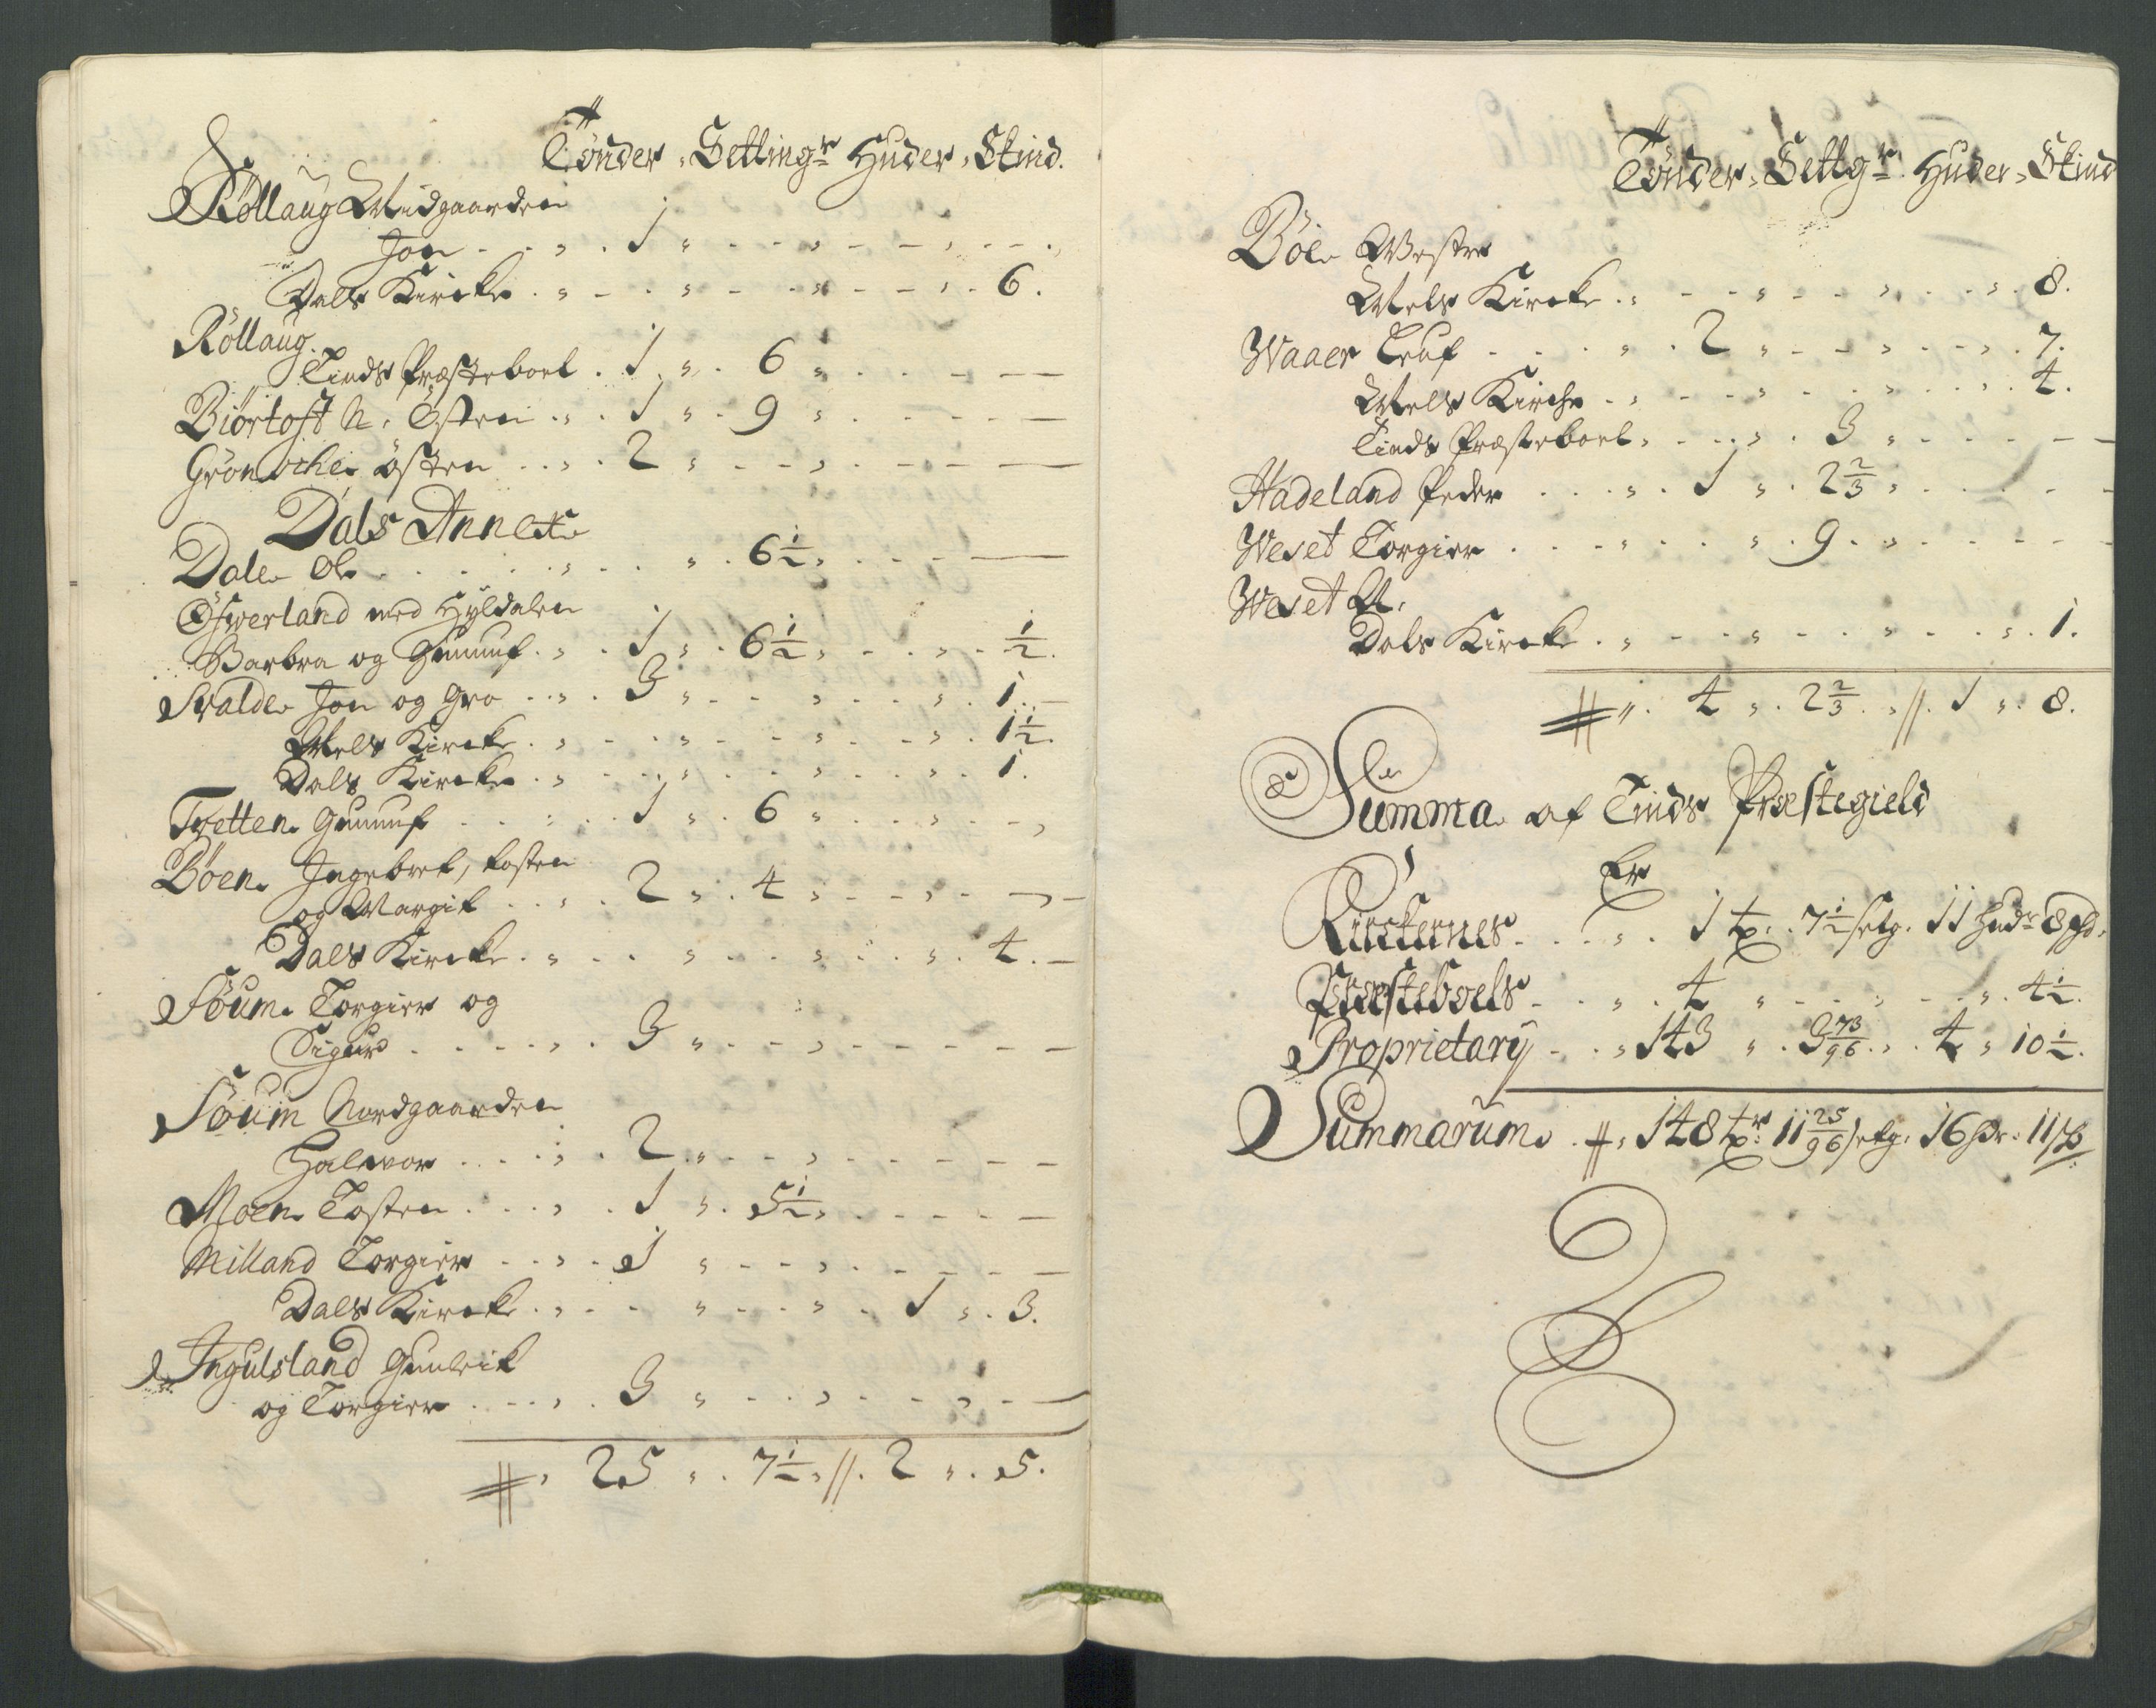 Tönder, Settingr Huder, Skind.
Röllaug Midgaarden
Jon 1
Dals Kircke 6.
Röllaug
Tinds Præsteboel 1 6
Biörtoft N. Östen 1 9
Grönsche Östen 2
Dals Annex
Dale Ole 6½
Öfwerland med Hyldalen
Barbra og Gunnuf 1 6½ ½.
Svalde Jon og Gro 3 1
Mels Kircke 1½.
Dals Kircke 1.
Tvetten Gunnuf 1 6
Böen Ingebret, Tosten
og Margit 2 4
Dals Kircke 4.
Söum Torgier og
Sigur 3
Söum Nordgaarden
Halvor 2
Moen Tosten 1 5½
Milland Torgier 1
Dals Kircke 1 3.
Ingulsland Gunleik
og Torgier 3
25 7½ // 2 5.
Tönder, Settgr Huder, Skind
Böe Westre
Mels Kircke 8.
Waaer Leuf 2 7.
Mels Kirche 4.
Tinds Præsteboel 3
Hadeland Peder 1 2⅔
Weset Torgier 9
Weset N.
Dals Kircke 1.
4 2⅔ // 1 8.
Summa af Tinds Præstegield
Er
Kirckernes 1 tr. 7½ setg. 11 hudr 8 sk.
Præsteboels 4 4½.
Proprietarij 143 3 73/96 4 10½.
Summarum 148 tr 11 25/96 setg. 16 hr. 11 sk